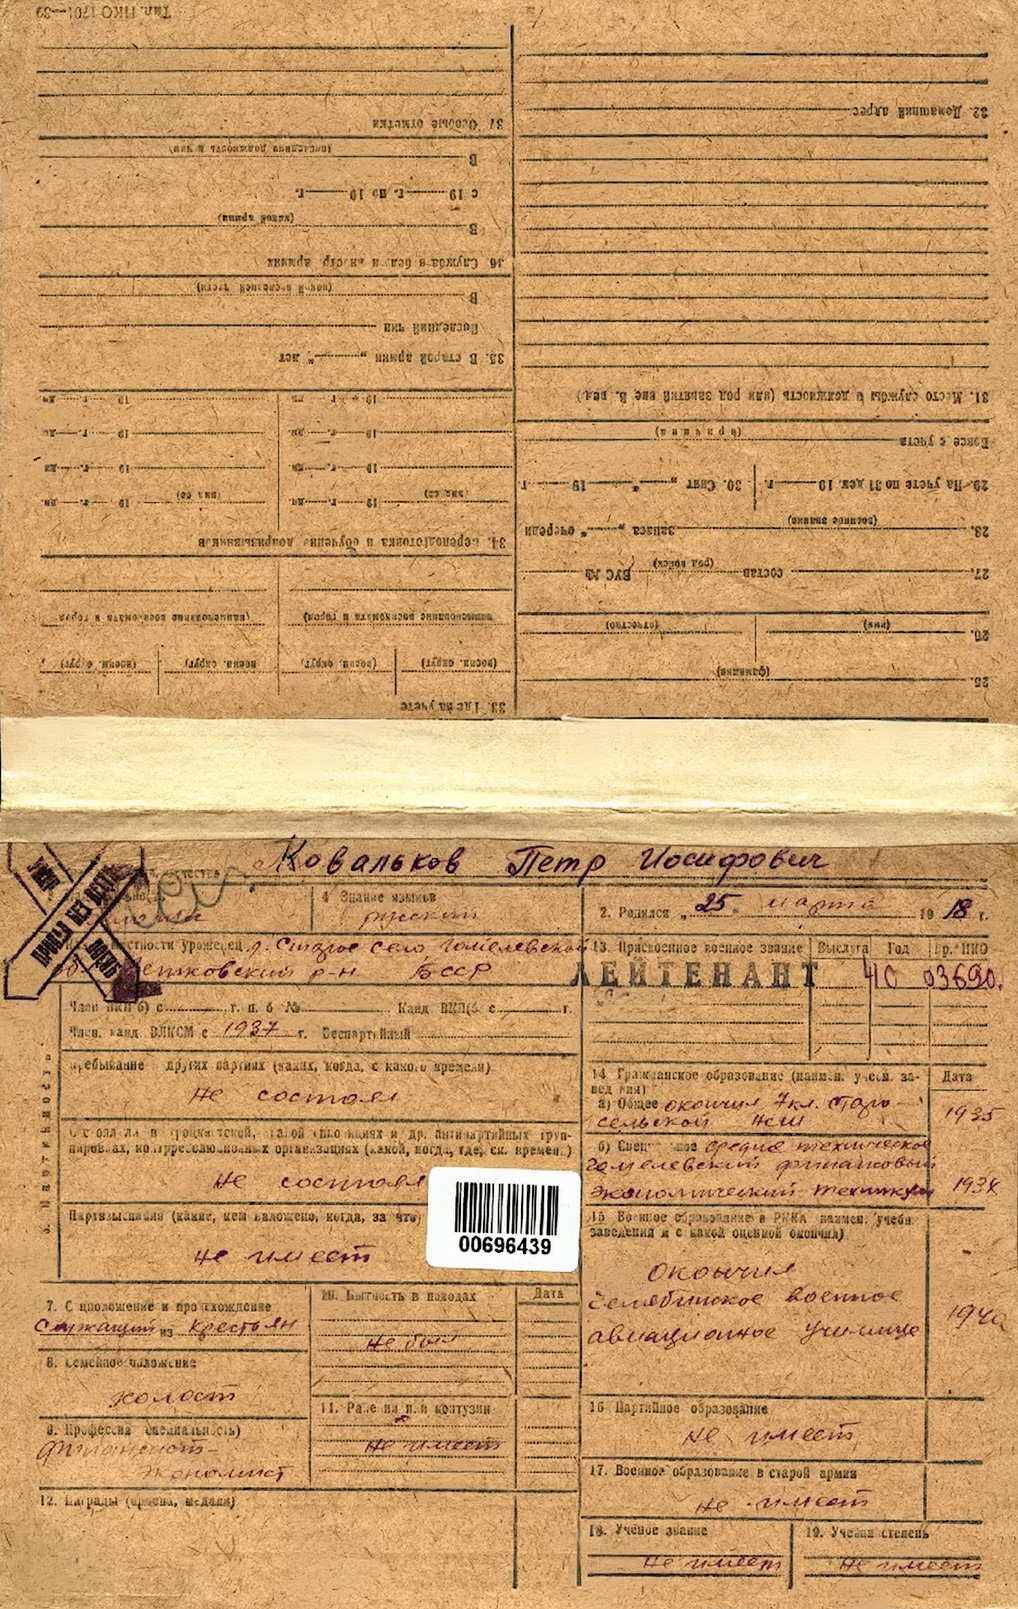 Тип. НКО 1701—39
32. Домашний адрес
31. Место службы и должность (или род занятий вне В. вед.)
Вовсе с учета
(причина)
29. На учете по 31 дек. 19 г. 30. Снят „ “ 19 г.
28. запаса „ “ очереди
(военное звание)
27. состав ВУС №
(род войск)
26.
(имя) (отчество)
25.
(фамилия)
37. Особые отметки
В
(последняя должность и чин)
с 19 г. по 19 г.
В
(какой армии)
36. Служба в бел. и иностр армиях
В
(какой последней части)
Последний чин
35. В старой армии „ “ лет
19 г. дн 19 г. дн
19 г. дн 19 г. дн
19 г. дн 19 г. дн
19 г. дн 19 г. дн
(вид сб) (вид сб)
34. Переподготовка и обучение допризывников
(наименование военкомата и город) (наименование военкомата и город)
(военн. округ) (военн. округ) (военн. округ) (военн. округ)
33. Где на учете
Ковальков Петр Иосифович
4 Знание языков
русский
2. Родился „25“ марта 1918 г.
местности уроженец д. Старое село Гомелевской
Ветковский р-н БССР
ПРИВОД БЕЗ
13. Присвоенное военное звание Выслуга Год Пр. НКО
ЛЕЙТЕНАНТ 40 03690.
Член ВКП(б) с г. п. б № Канд ВКП(б с г.
Член, канд ВЛКСМ с 1937 г. Беспартийный
Пребывание других партиях (каких, когда, с какого времени)
Не состоял
Не состоял
Партвзыскания (какие, кем наложено, когда, за что)
Не имеет
3. Партийность
00696439
14 Гражданское образование (наимен. учебн. заведения)
Дата
а) Общее окончил 7 кл. Старосельской НСШ
1935
б) Специальное средне техническое
Гомелевский финансовый
экономический техникум
15 Военное образование в РККА наимен. учебн.
заведения и с какой оценкой окончил)
окончил
Челябинское военное
авиационное училище
1940
7. С положение и происхождение
Служащий из крестьян
8. Семейное положение
холост
9. Профессия (специальность)
финансист-
экономист
10. Бытность в походах Дата
Не был
11. Ранения и контузии
Не имеет
12. Награды (ордена, медали)
16 Партийное образование
Не имеет
17. Военное образование в старой армии
Не имеет
18. Ученое звание
Не имеет
19. Ученая степень
Не имеет